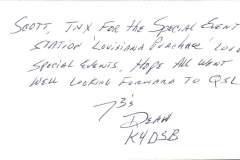 SCOTT, TNX FOR THE SPECIAL EVENT
STATION 'LOUISIANA PURCHASE' LOVE
SPECIAL EVENTS, HOPE ALL WENT
WELL LOOKING FORWARD TO QSL
73's
DEAN
K4DSB